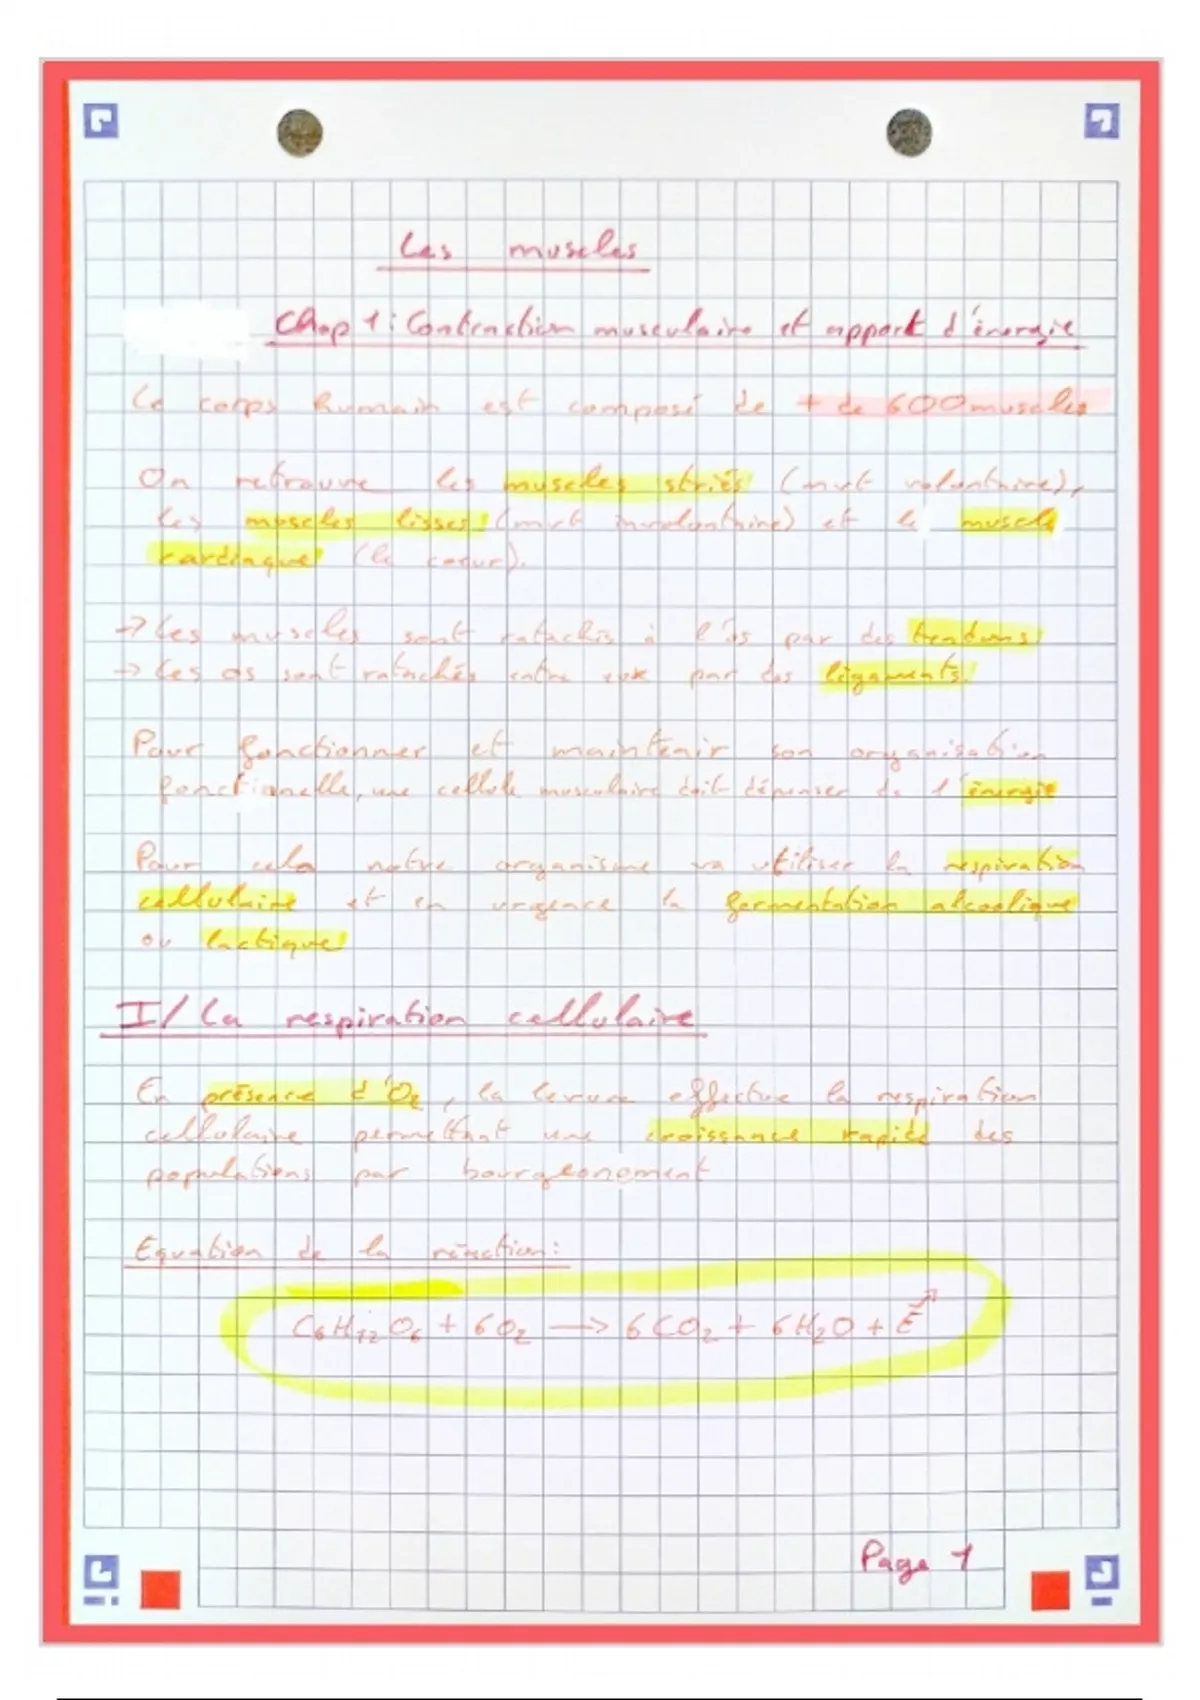 Les muscles
Chap 1 : Contraction musculaire et apport d'énergie
Le corps humain est composé de + de 600 muscles
On retrouve les muscles striés (mvt volontaire),
les muscles lisses (mvt involontaire) et le muscle
cardiaque (le coeur).
→ Les muscles sont ratachés à l'os par des tendons
→ Les os sont ratachés entre eux par des ligaments.
Pour fonctionner et maintenir son organisation
fonctionelle, une cellule musculaire doit dépenser de l'énergie
Pour cela notre organisme va utiliser la respiration
cellulaire et en urgence la fermentation alcoolique
ou lactique
I/ La respiration cellulaire
En présence d'O₂, la levure effectue la respiration
cellulaire permettant une croissance rapide des
populations par bourgeonement
Equation de la réaction :
C₆H₁₂O₆ + 6O₂ → 6CO₂ + 6H₂O + E
Page 1